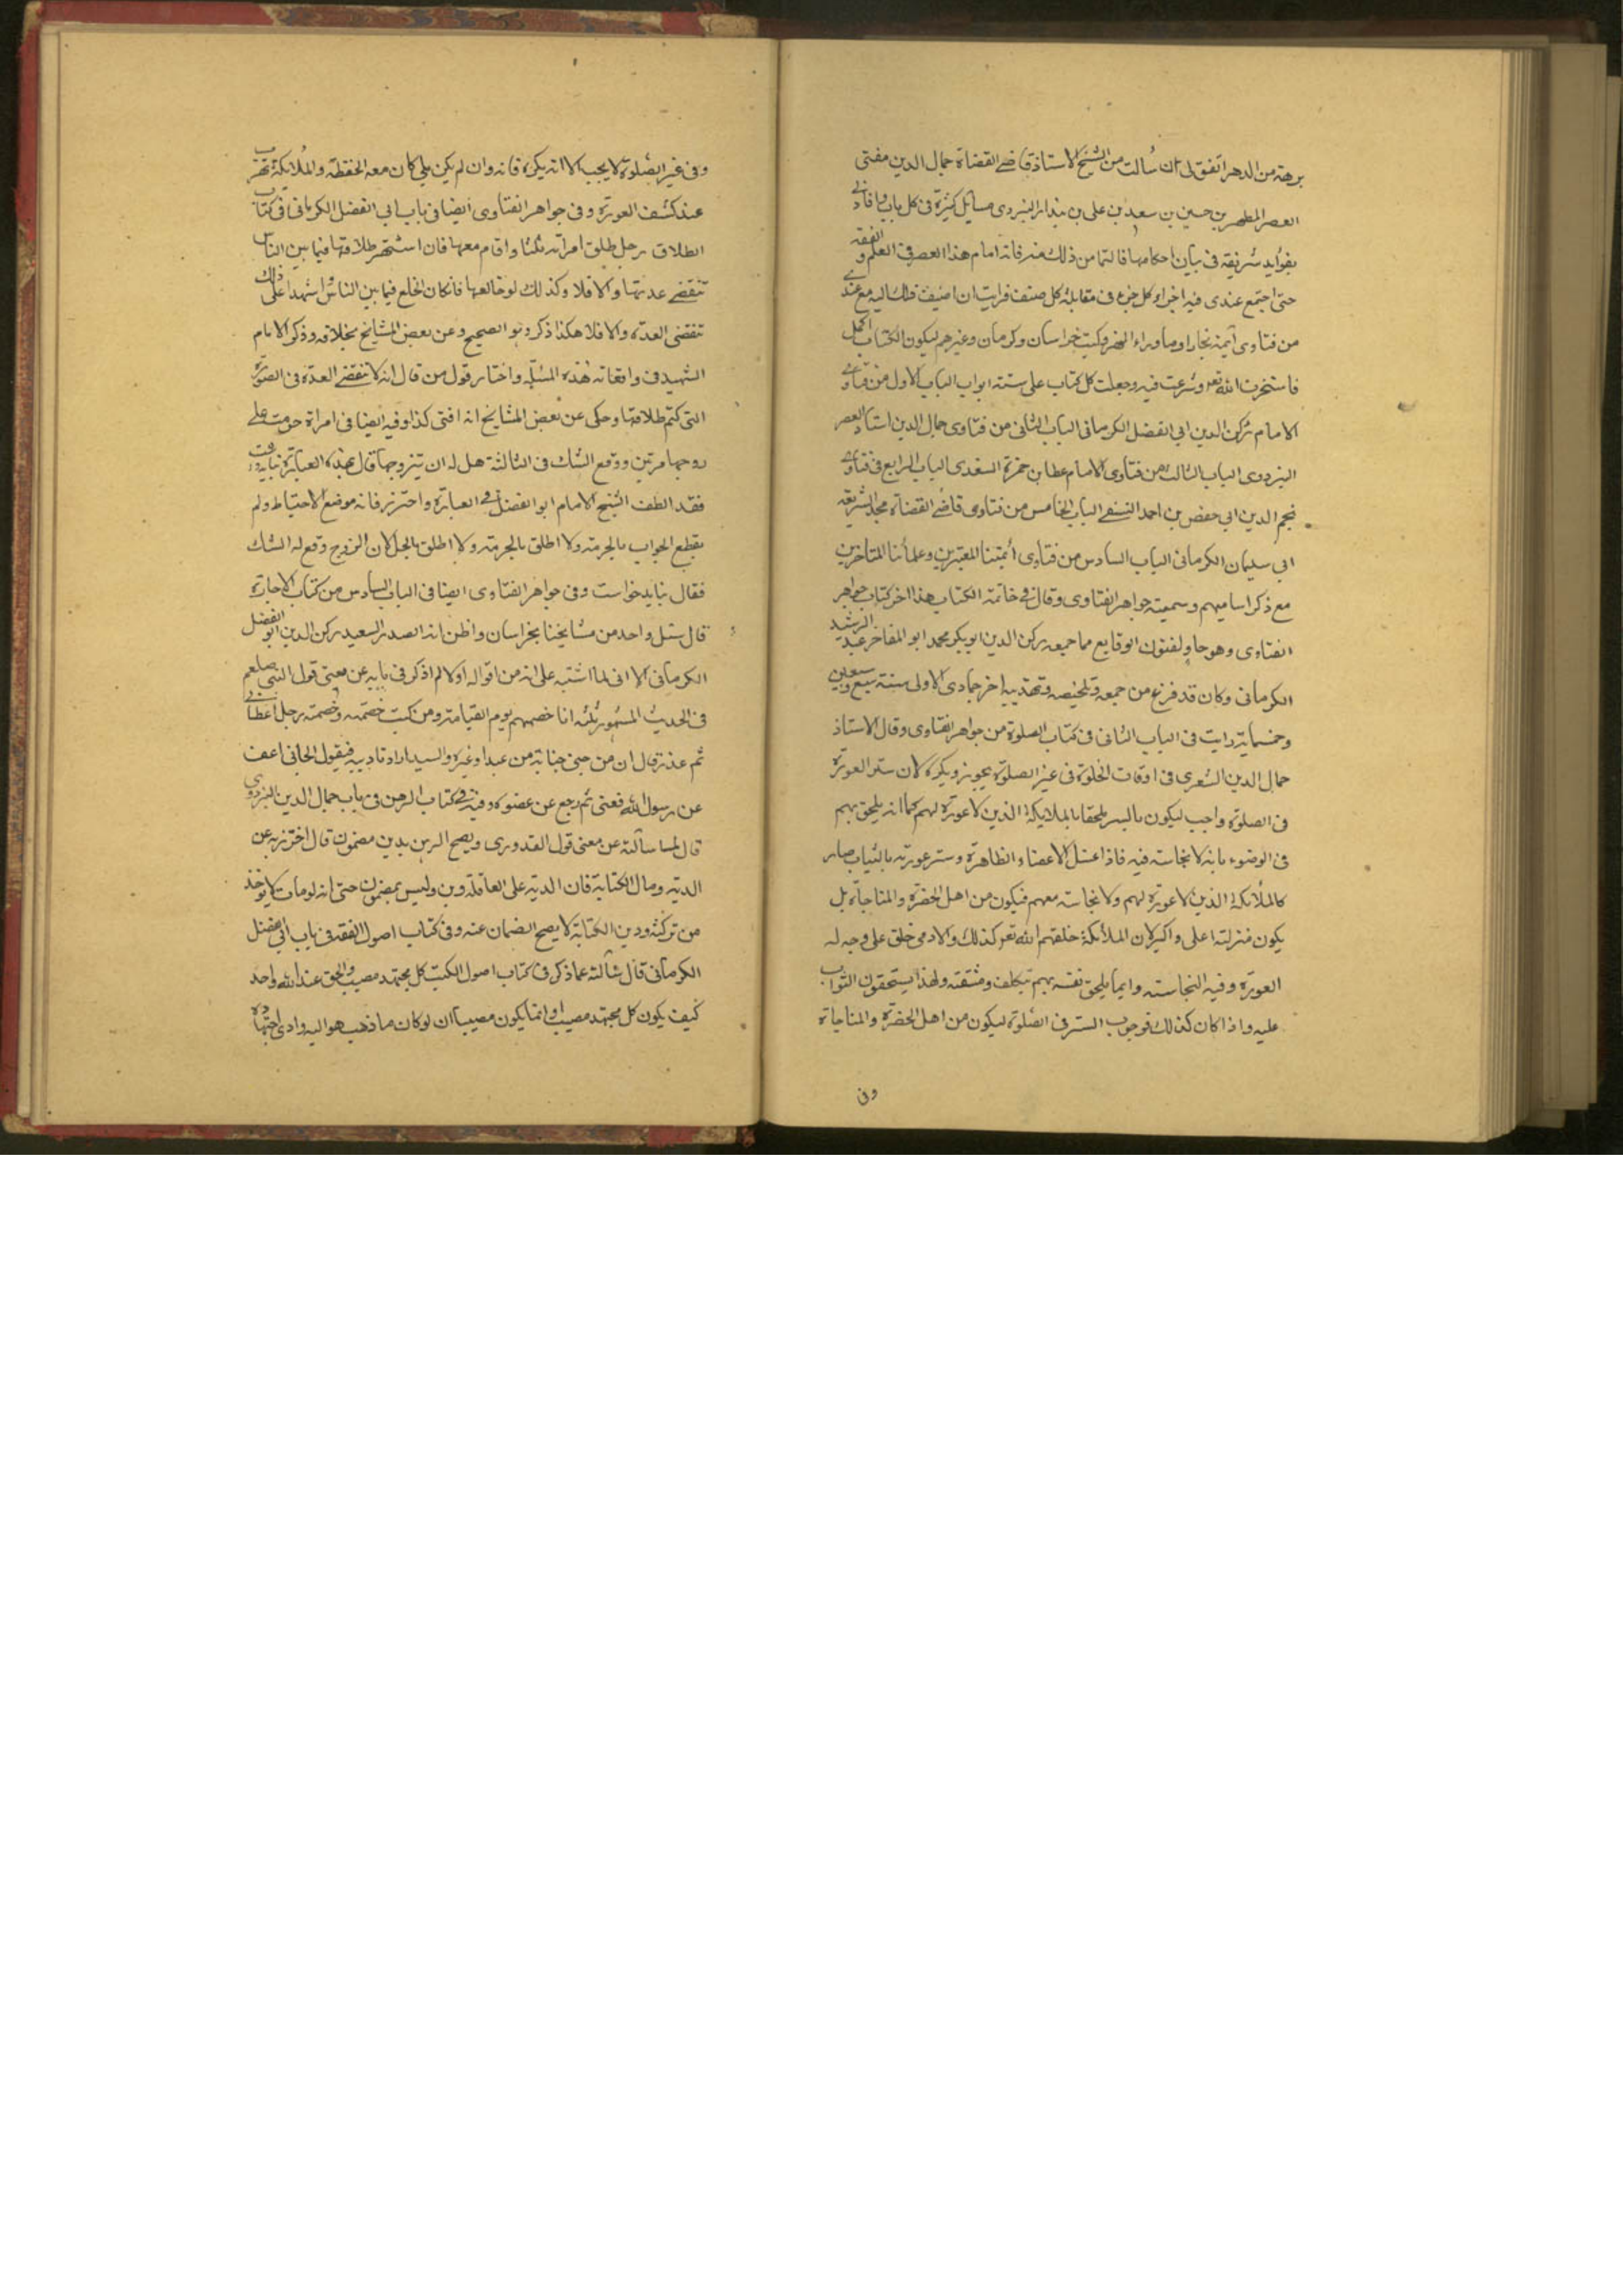 برهة من الدهر اتفق لى ان سألت من الشيخ الاستاذ قاضى القضاة جمال الدين مفتى
العصر المطهر بن حسين بن سعد بن على بن بندار اليزدى مسائل كثيرة فى كل باب وافادنى
بفوايد شريفة فى بيان احكامها فالتمامن ذلك منه فانه امام هذا العصر فى العلم والفقه
حتى اجتمع عندى فيه اجزاء كل جزء فى مقابلة كل صنف فرايت ان اضيف ذلك اليه مع عندى
من فتاوى ائمة بخارا وماوراء النهر وكتب خراسان وكرمان وغيرهم ليكون الكتاب اكمل
فاستخرت الله تعه وشرعت فيه وجعلت كل كتاب على ستة ابواب الباب الاول من فتاوى
الامام ركن الدين ابى الفضل الكرمانى الباب الثانى من فتاوى جمال الدين استاد العصر
اليزدوى الباب الثالث من فتاوى الامام عطا بن حمزة السغدى الباب الرابع فى فتاوى
نجم الدين ابى حفص بن احمد النسفى الباب الخامس من فتاوى قاضى القضاة مجد الشريعة
ابى سليمان الكرمانى الباب السادس من فتاوى ائمتنا المعتبرين وعلمائنا المتاخرين
مع ذكر اساميهم وسميته جواهر الفتاوى وقال فى خاتمة الكتاب هذا اخر كتاب جواهر
الفتاوى وهو حاو لفنون الوقايع مما جمعه ركن الدين ابو بكر محمد ابو المفاخر عبد الرشيد
الكرمانى وكان قد فرغ من جمعه وتلخيصه وتهذيبه اخر جمادى الاولى سنة سبع وسبعين
وخمسماية رايت فى الباب الثانى فى كتاب الصلوة من جواهر الفتاوى وقال الاستاذ
جمال الدين الشعرى فى اوقات الخلوة فى غير الصلوة يجوز ويكره لان ستر العورة
فى الصلوة واجب ليكون بالستر ملحقا بالملايكة الذين لا عورة لهم كما انه يلحق بهم
فى الوضوء بانه لا نجاسة فيه فاذا غسل الاعضاء الظاهرة وستر عورته بالثياب صار
كالملائكة الذين لا عورة لهم ولا نجاسة معهم فيكون من اهل الحضرة والمناجاة بل
يكون منزلته اعلى واكبر لان الملائكة خلقهم الله تعه كذلك والادمى خلق على وجه له
العورة وفيه النجاسة وانما يلحق نفسه بهم بتكلف ومشقة ولهذا يستحقون الثواب
عليه واذا كان كذلك فوجوب الستر فى الصلوة ليكون من اهل الحضرة والمناجاة
وفى
وفى غير الصلوة لا يجب الا انه يكره فانه وان لم يكن يلى كان معه الحفظة والملائكة تهرب
عند كشف العورة وفى جواهر الفتاوى ايضا فى باب ابى الفضل الكرمانى فى كتاب
الطلاق رجل طلق امراته ثلثا واقام معها فان اشتهر طلاقها فيما بين الناس
تنقضى عدتها والا فلا وكذلك لو خالعها فانكان الخلع فيما بين الناس واشهد على ذلك
تنقضى العدة والا فلا هكذا ذكر وهو الصحيح وعن بعض المشايخ بخلافه وذكر الامام
الشهيد فى واقعاته هذه المسئلة واختار قول من قال انه لا تنقضى العدة فى الصورة
التى كتم طلاقها وحكى عن بعض المشايخ انه افتى كذا وفيه ايضا فى امراة حرمت على
زوجها مرتين ووقع الشك فى الثالثة هل له ان يتزوجها قال بهذه العبارة
فقد الطف الشيخ الامام ابو الفضل فى العبارة واحترز فانه موضع الاحتياط ولم
يقطع الجواب بالحرمة ولا اطلق بالحرمة ولا اطلق بالحل لان الزوج وقع له الشك
فقال نبايد خواست وفى جواهر الفتاوى ايضا فى الباب السادس من كتاب الاجارة
قال سئل واحد من مشايخنا بخراسان واظن انه الصدر السعيد ركن الدين ابو الفضل
الكرمانى الا انى لما اشتبه على انه من اقواله اولا لم اذكر فى بابه عن معنى قول النبى صلعم
فى الحديث المشهور ثلثة انا خصمهم يوم القيامة ومن كنت خصمه وخصمته رجل اعطى بى
ثم غدر قال ان من جنى جناية من عبد او غيره والسيد اراد تاديبه فيقول الجانى اعف
عن رسول الله فعفى ثم رجع عن عفوه وفيه فى كتاب الرهن فى باب جمال الدين اليزدوى
قال لما سالته عن معنى قول القدورى ويصح الرهن بدين مضمون قال احترز به عن
الدية ومال الكتابة فان الدية على العاقلة دين وليس بمضمون حتى انه لو مات لا يوخذ
من تركته ودين الكتابة لا يصح الضمان عنه وفى كتاب اصول الفقه فى باب ابى الفضل
الكرمانى قال سألته عما ذكر فى كتاب اصول الكتب كل مجتهد مصيب والحق عند الله واحد
كيف يكون كل مجتهد مصيب او انما يكون مصيبا ان لو كان ما ذهب هو اليه وادى اجتهاده